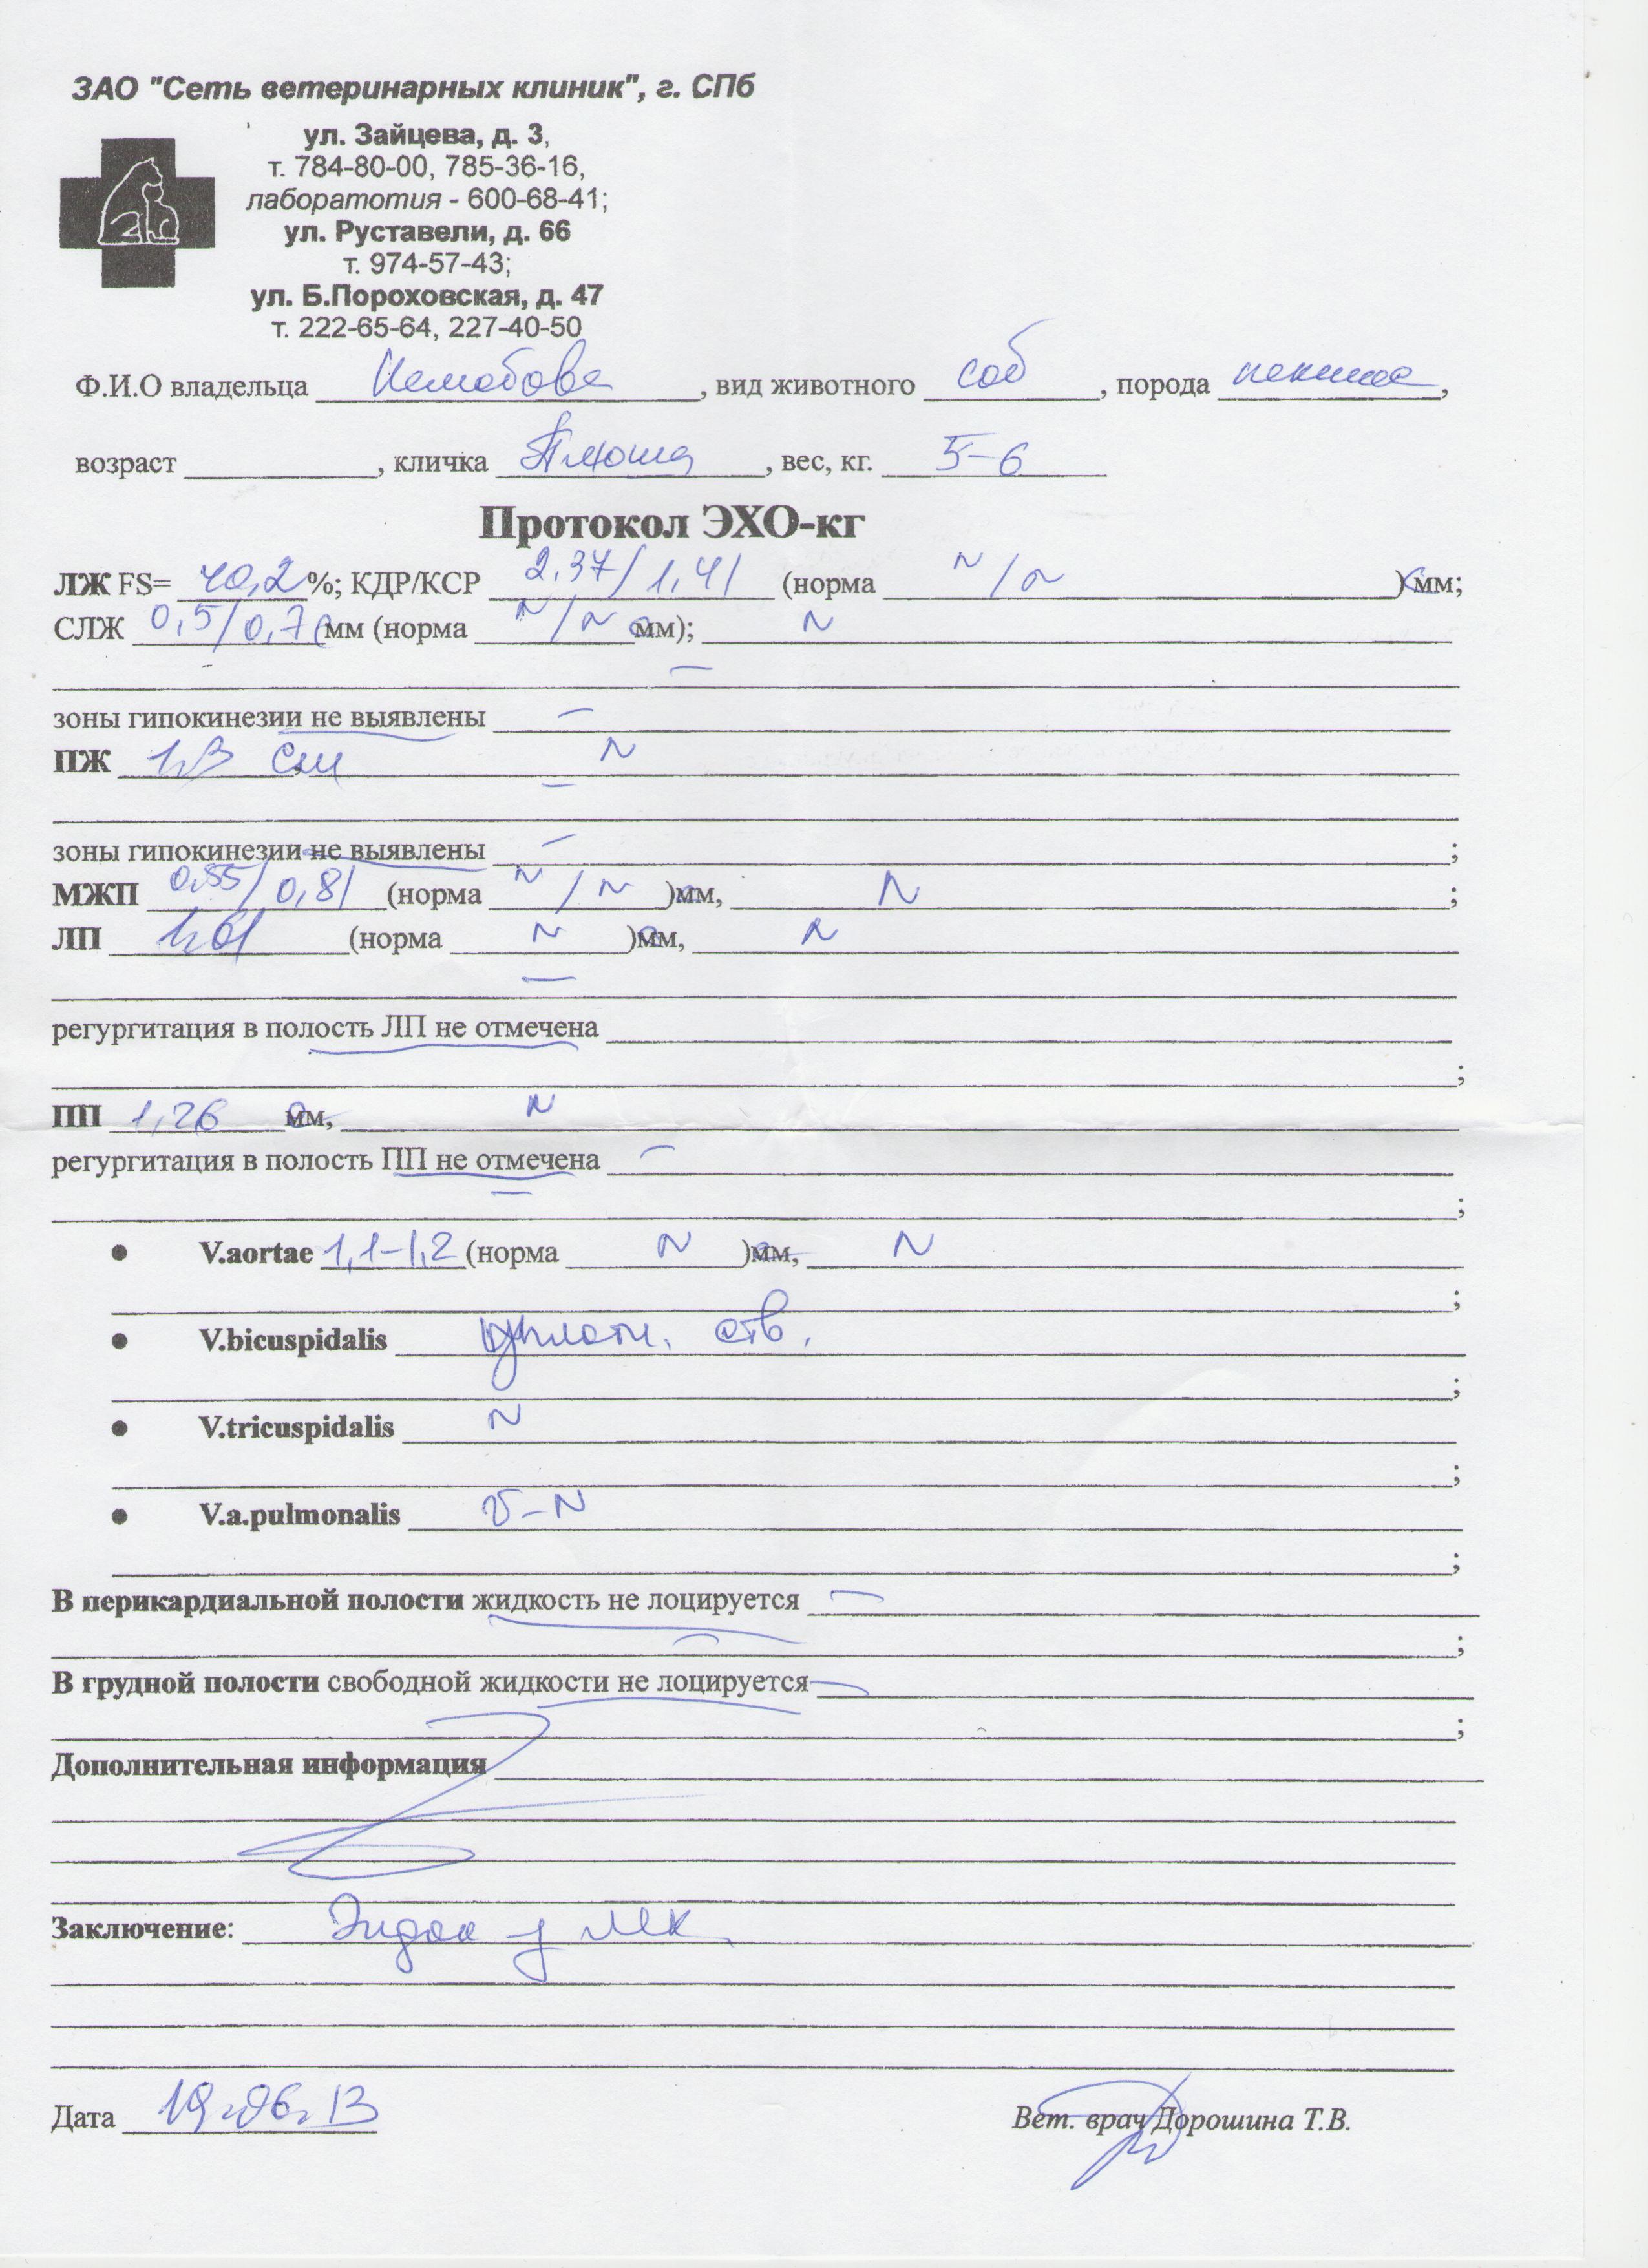 ЗАО "Сеть ветеринарных клиник", г. СПб
ул. Зайцева, д. 3,
т. 784-80-00, 785-36-16,
лаборатотия - 600-68-41;
ул. Руставели, д. 66
т. 974-57-43;
ул. Б.Пороховская, д. 47
т. 222-65-64, 227-40-50
Ф.И.О владельца , вид животного соб , порода ,
возраст , кличка Плюша , вес, кг. 5-6
Протокол ЭХО-кг
ЛЖ FS= 40,2 %; КДР/КСР 2,37/1,41 (норма N/N ) мм;
СЛЖ 0,5/0,7 мм (норма N/N мм); N
зоны гипокинезии не выявлены –
ПЖ 1,3 см N
зоны гипокинезии не выявлены – ;
МЖП 0,55/0,81 (норма N/N )мм, N ;
ЛП (норма N )мм, N
регургитация в полость ЛП не отмечена
;
ПП 1,26 мм, N
регургитация в полость ПП не отмечена –
;
• V.aortae 1,1-1,2 (норма N )мм, N
;
• V.bicuspidalis уплотн. ств.
;
• V.tricuspidalis N
;
• V.a.pulmonalis v-N
;
В перикардиальной полости жидкость не лоцируется –
;
В грудной полости свободной жидкости не лоцируется –
;
Дополнительная информация
Заключение: МК
Дата 19.06.13 Вет. врач Дорошина Т.В.